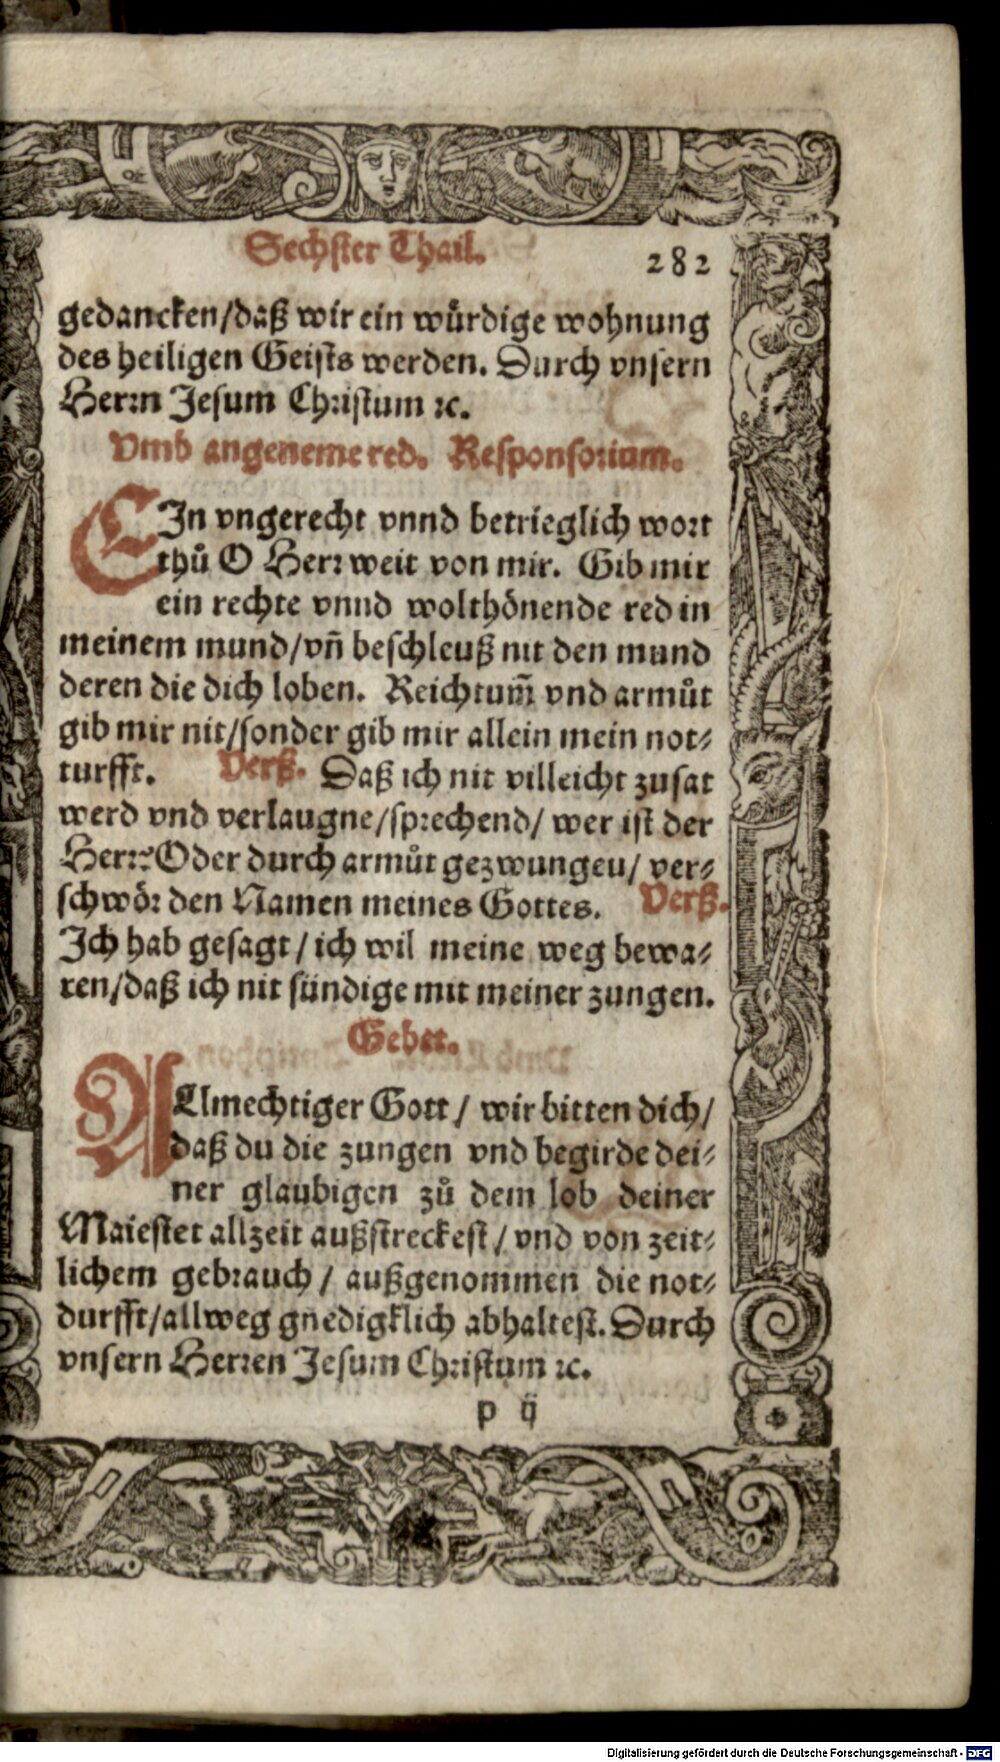 Sechster Thail. 282
gedancken/daß wir ein wuͤrdige wohnung
des heiligen Geists werden. Durch vnsern
Herrn Jesum Christum ꝛc.
Vmb angeneme red. Responsorium.
EJn vngerecht vnnd betrieglich wort
thuͦ O Herr weit von mir. Gib mir
ein rechte vnnd wolthoͤnende red in
meinem mund/vn̄ beschleuß nit den mund
deren die dich loben. Reichtum̃ vnd armuͦt
gib mir nit/sonder gib mir allein mein not⸗
turfft. Verß. Daß ich nit villeicht zusat
werd vnd verlaugne/sprechend/ wer ist der
Herr? Oder durch armuͦt gezwungeu/ ver⸗
schwoͤr den Namen meines Gottes. Verß.
Jch hab gesagt/ ich wil meine weg bewa⸗
ren/daß ich nit suͤndige mit meiner zungen.
Gebet.
ALlmechtiger Gott/ wir bitten dich/
daß du die zungen vnd begirde dei⸗
ner glaubigen zuͦ dem lob deiner
Maiestet allzeit außstreckest/ vnd von zeit⸗
lichem gebrauch/ außgenommen die not⸗
durfft/allweg gnedigklich abhaltest. Durch
vnsern Herren Jesum Christum ꝛc.
p ij
Digitalisierung gefördert durch die Deutsche Forschungsgemeinschaft - DFG